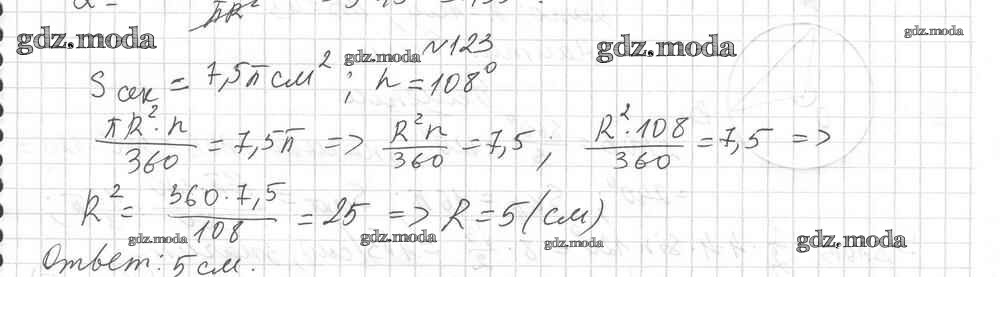 gdz.moda gdz.moda №123 gdz.moda gdz.moda
Sсек = 7,5π см²; n = 108°
πR²·n/360 = 7,5π => R²n/360 = 7,5; R²·108/360 = 7,5 =>
R² = 360·7,5/108 = 25 => R = 5 (см)
gdz.moda gdz.moda gdz.moda gdz.moda
Ответ: 5 см.